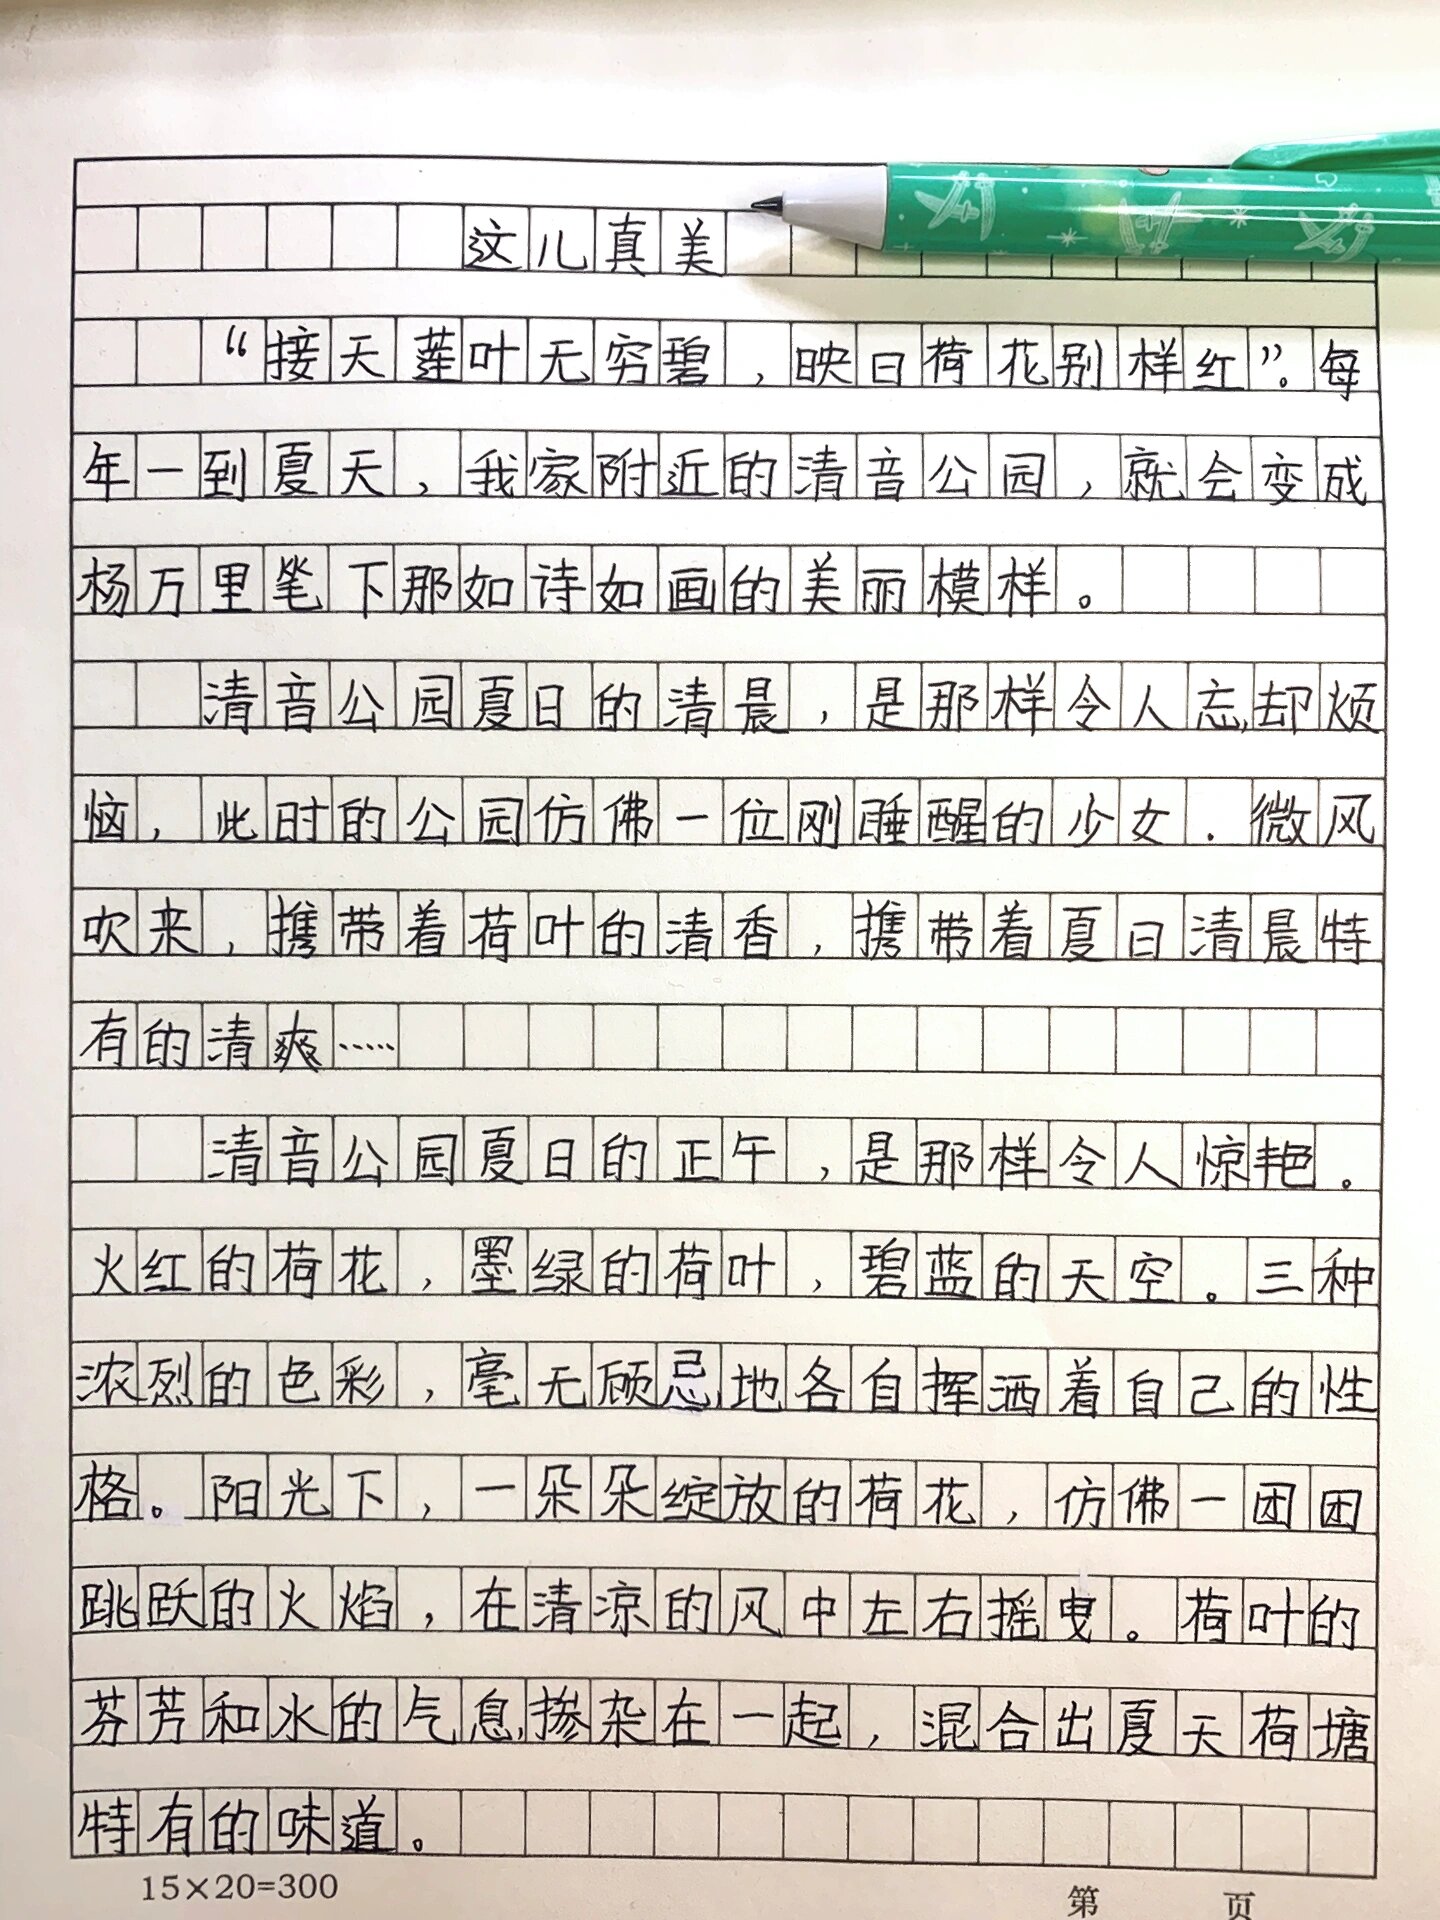 这儿真美
“接天莲叶无穷碧，映日荷花别样红”。每
年一到夏天，我家附近的清音公园，就会变成
杨万里笔下那如诗如画的美丽模样。
清音公园夏日的清晨，是那样令人忘却烦
恼，此时的公园仿佛一位刚睡醒的少女．微风
吹来，携带着荷叶的清香，携带着夏日清晨特
有的清爽……
清音公园夏日的正午，是那样令人惊艳。
火红的荷花，墨绿的荷叶，碧蓝的天空。三种
浓烈的色彩，毫无顾忌地各自挥洒着自己的性
格。阳光下，一朵朵绽放的荷花，仿佛一团团
跳跃的火焰，在清凉的风中左右摇曳。荷叶的
芬芳和水的气息掺杂在一起，混合出夏天荷塘
特有的味道。
15×20=300
第 页